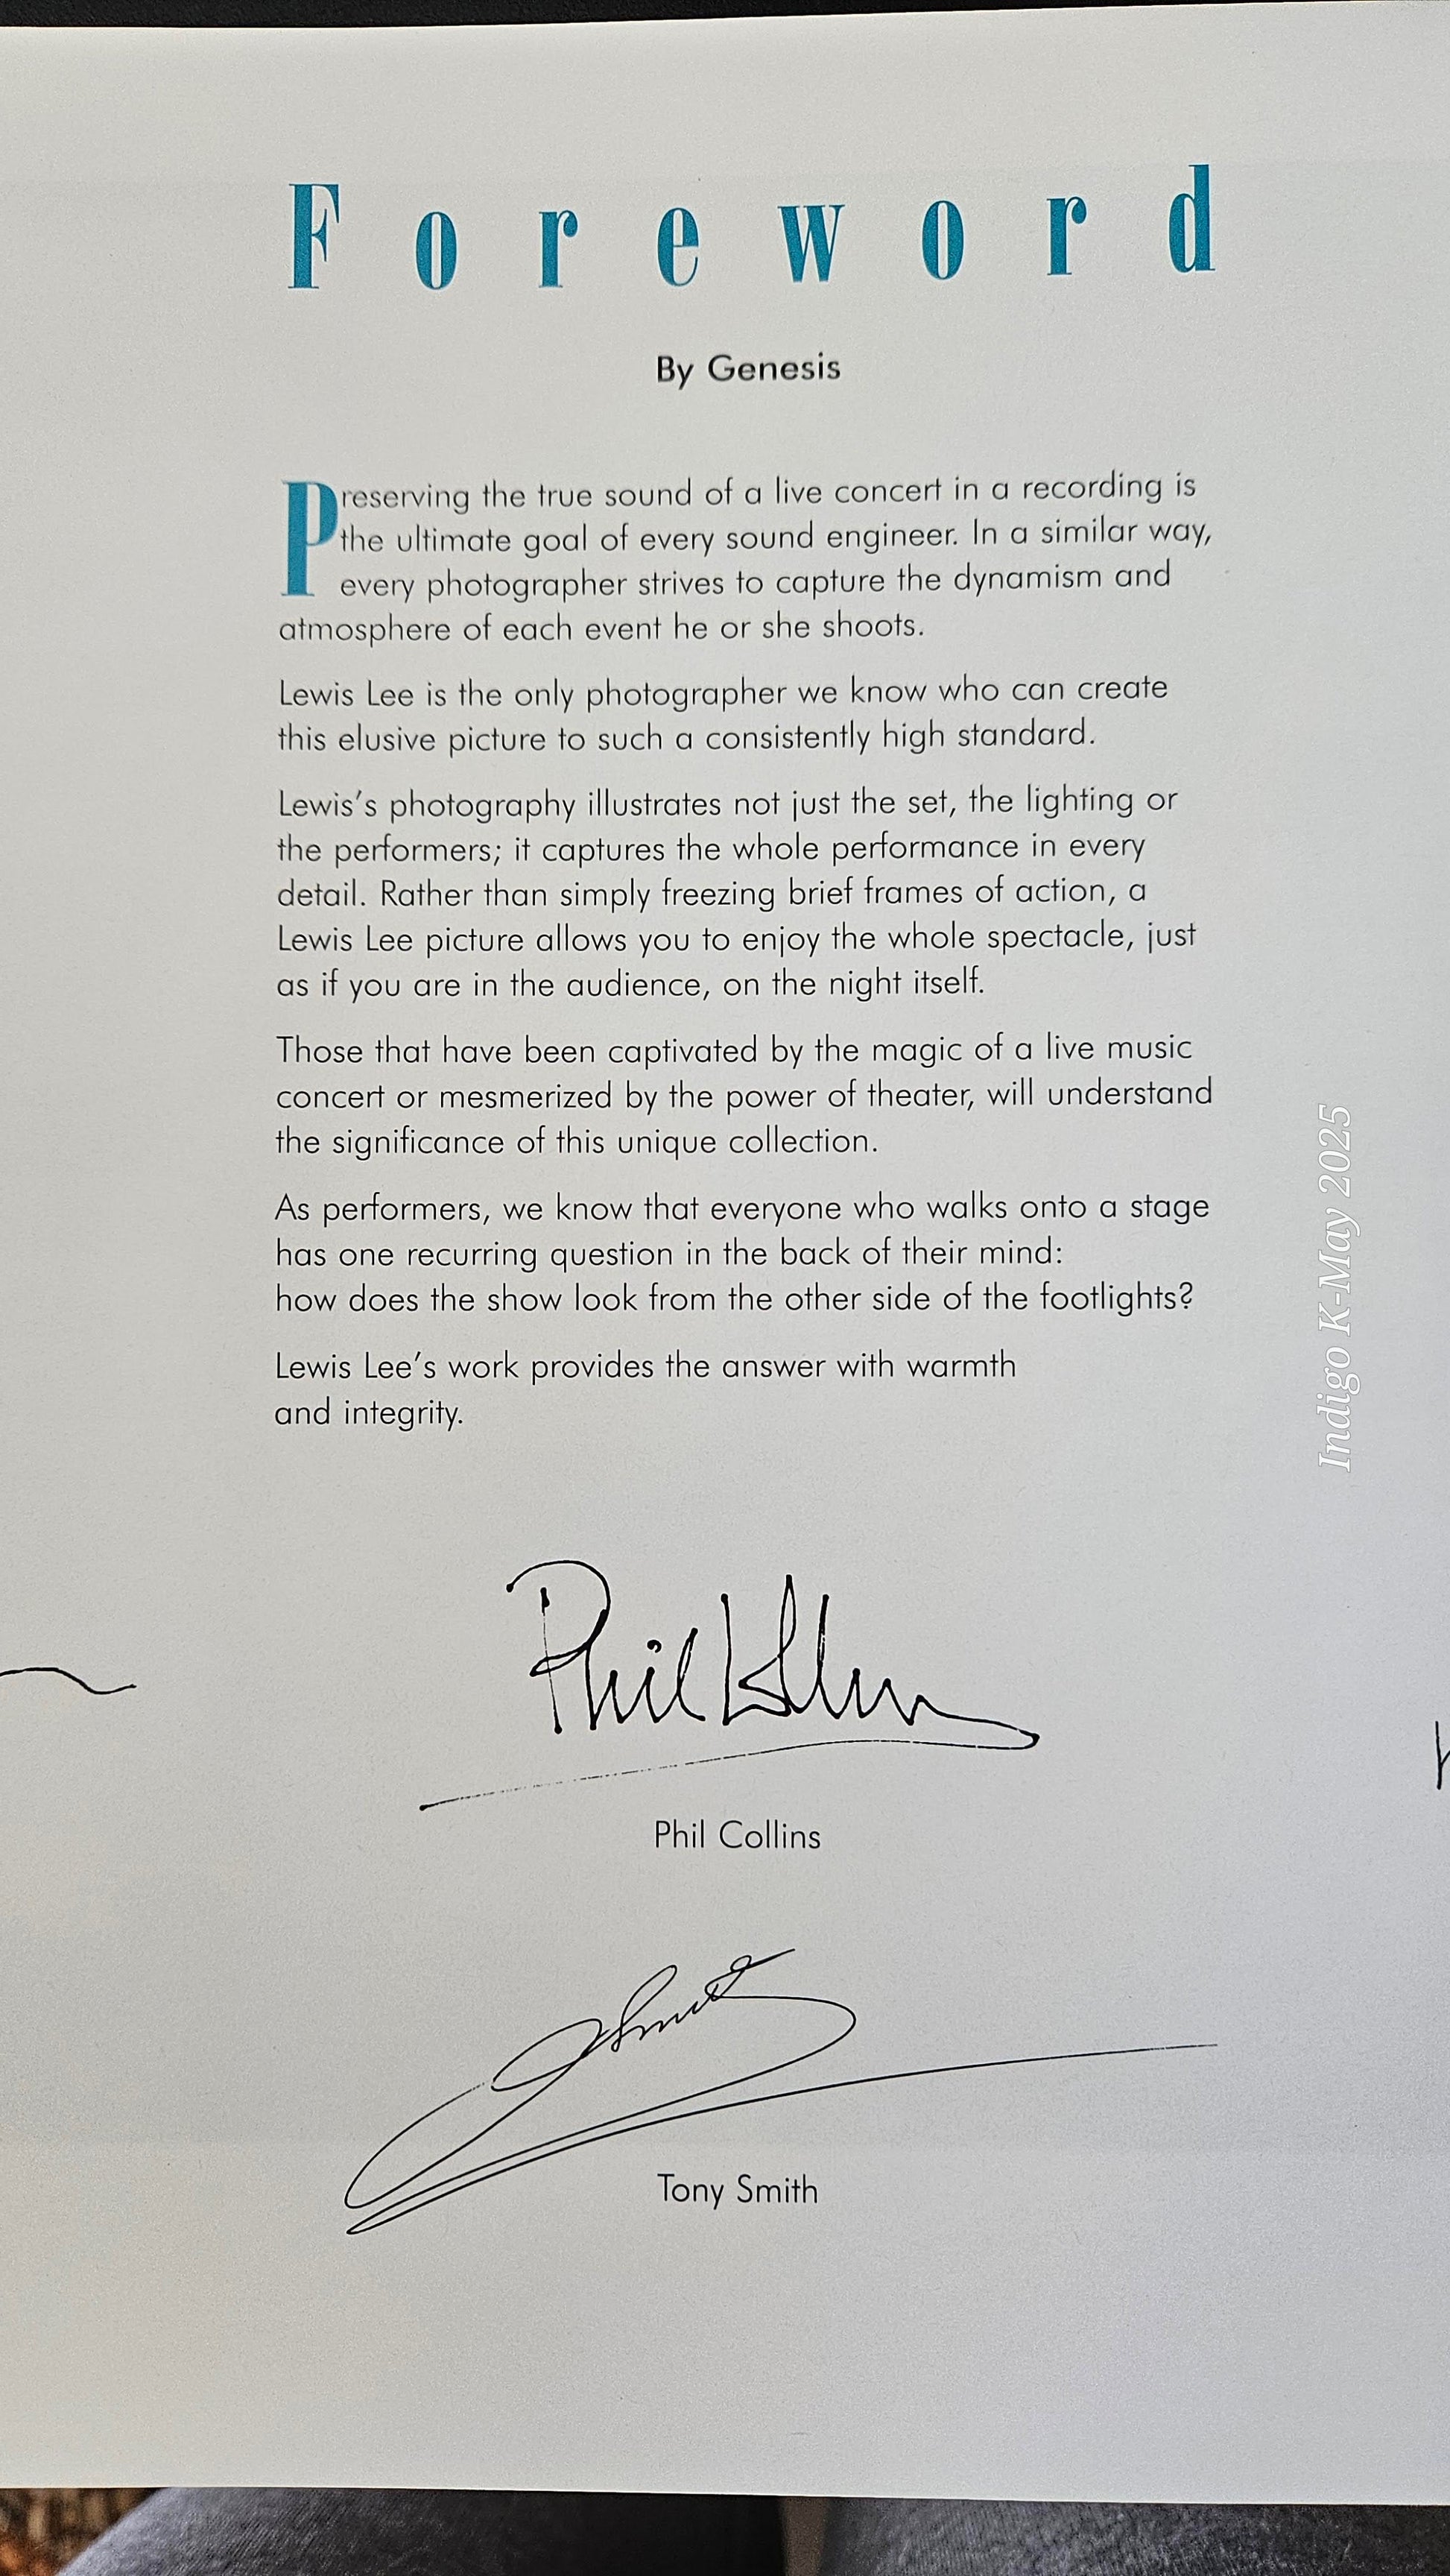 Foreword
By Genesis
Preserving the true sound of a live concert in a recording is
the ultimate goal of every sound engineer. In a similar way,
every photographer strives to capture the dynamism and
atmosphere of each event he or she shoots.
Lewis Lee is the only photographer we know who can create
this elusive picture to such a consistently high standard.
Lewis's photography illustrates not just the set, the lighting or
the performers; it captures the whole performance in every
detail. Rather than simply freezing brief frames of action, a
Lewis Lee picture allows you to enjoy the whole spectacle, just
as if you are in the audience, on the night itself.
Those that have been captivated by the magic of a live music
concert or mesmerized by the power of theater, will understand
the significance of this unique collection.
As performers, we know that everyone who walks onto a stage
has one recurring question in the back of their mind:
how does the show look from the other side of the footlights?
Lewis Lee's work provides the answer with warmth
and integrity.
Phil Collins
Phil Collins
Tony Smith
Indigo K-May 2025